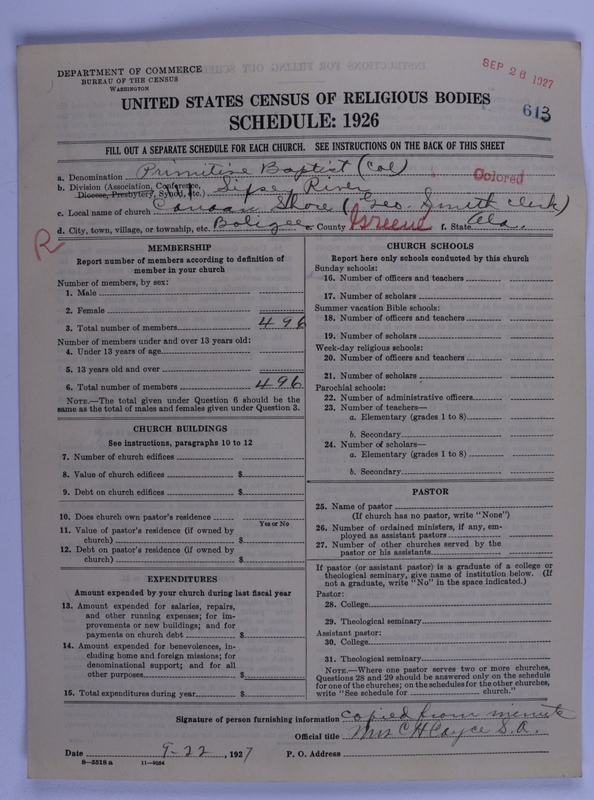 DEPARTMENT OF COMMERCE
BUREAU OF THE CENSUS
WASHINGTON
SEP 26 1927
UNITED STATES CENSUS OF RELIGIOUS BODIES
613
SCHEDULE: 1926
FILL OUT A SEPARATE SCHEDULE FOR EACH CHURCH. SEE INSTRUCTIONS ON THE BACK OF THIS SHEET
a. Denomination Primitive Baptist (Col) Colored
b. Division (Association, Conference, Diocese, Presbytery, Synod, etc.) Sipsey River
c. Local name of church Canaan Shore (Geo. Smith clerk)
d. City, town, village, or township, etc. Boligee e. County Greene f. State Ala.
R
MEMBERSHIP
Report number of members according to definition of
member in your church
Number of members, by sex:
1. Male
2. Female
3. Total number of members 496
Number of members under and over 13 years old:
4. Under 13 years of age
5. 13 years old and over
6. Total number of members 496
NOTE.—The total given under Question 6 should be
same as the total of males and females given under Question 3.
CHURCH BUILDINGS
See instructions, paragraphs 10 to 12
7. Number of church edifices
8. Value of church edifices $
9. Debt on church edifices $
10. Does church own pastor's residence
Yes or No
11. Value of pastor's residence (if owned by
church) $
12. Debt on pastor's residence (if owned by
church) $
EXPENDITURES
Amount expended by your church during last fiscal year
13. Amount expended for salaries, repairs,
and other running expenses; for im-
provements or new buildings; and for
payments on church debt $
14. Amount expended for benevolences, in-
cluding home and foreign missions; for
denominational support; and for all
other purposes $
15. Total expenditures during year $
CHURCH SCHOOLS
Report here only schools conducted by this church
Sunday schools:
16. Number of officers and teachers
17. Number of scholars
Summer vacation Bible schools:
18. Number of officers and teachers
19. Number of scholars
Week-day religious schools:
20. Number of officers and teachers
21. Number of scholars
Parochial schools:
22. Number of administrative officers
23. Number of teachers—
a. Elementary (grades 1 to 8)
b. Secondary
24. Number of scholars—
a. Elementary (grades 1 to 8)
b. Secondary
PASTOR
25. Name of pastor
(If church has no pastor, write "None")
26. Number of ordained ministers, if any, em-
ployed as assistant pastors
27. Number of other churches served by the
pastor or his assistants
If pastor (or assistant pastor) is a graduate of a college or
theological seminary, give name of institution below. (If
not a graduate, write "No" in the space indicated.)
Pastor:
28. College
29. Theological seminary
Assistant pastor:
30. College
31. Theological seminary
NOTE.—Where one pastor serves two or more churches,
Questions 28 and 29 should be answered only on the schedule
for one of the churches; on the schedules for the other churches,
write "See schedule for church."
Signature of person furnishing information copied from minute
Official title Mrs C H Cayce S.A.
Date 9-22, 1927 P. O. Address
8—5518 a 11—9584